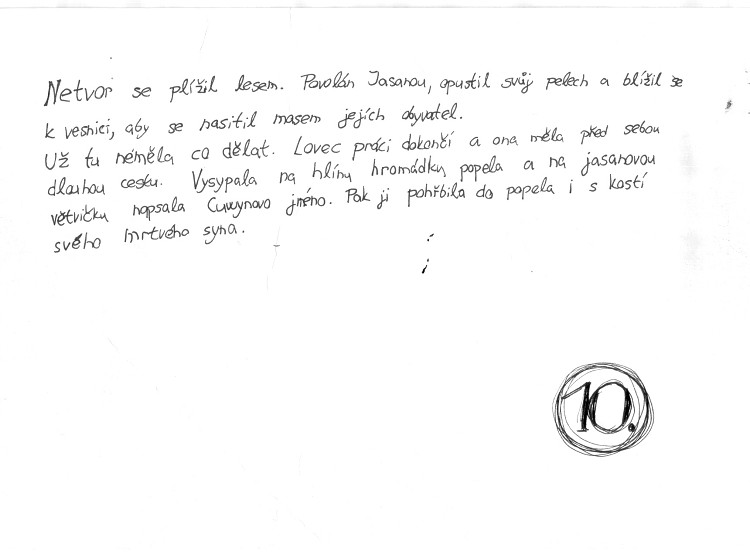 Netvor se plížil lesem. Povolán Jasanou, opustil svůj pelech a blížil se
k vesnici, aby se nasitil masem jejích obyvatel.
Už tu neměla co dělat. Lovec práci dokončí a ona měla před sebou
dlouhou cestu. Vysypala na hlínu hromádku popela a na jasanovou
větvičku napsala Cuwynovo jméno. Pak ji pohřbila do popela i s kostí
svého mrtvého syna.
10.